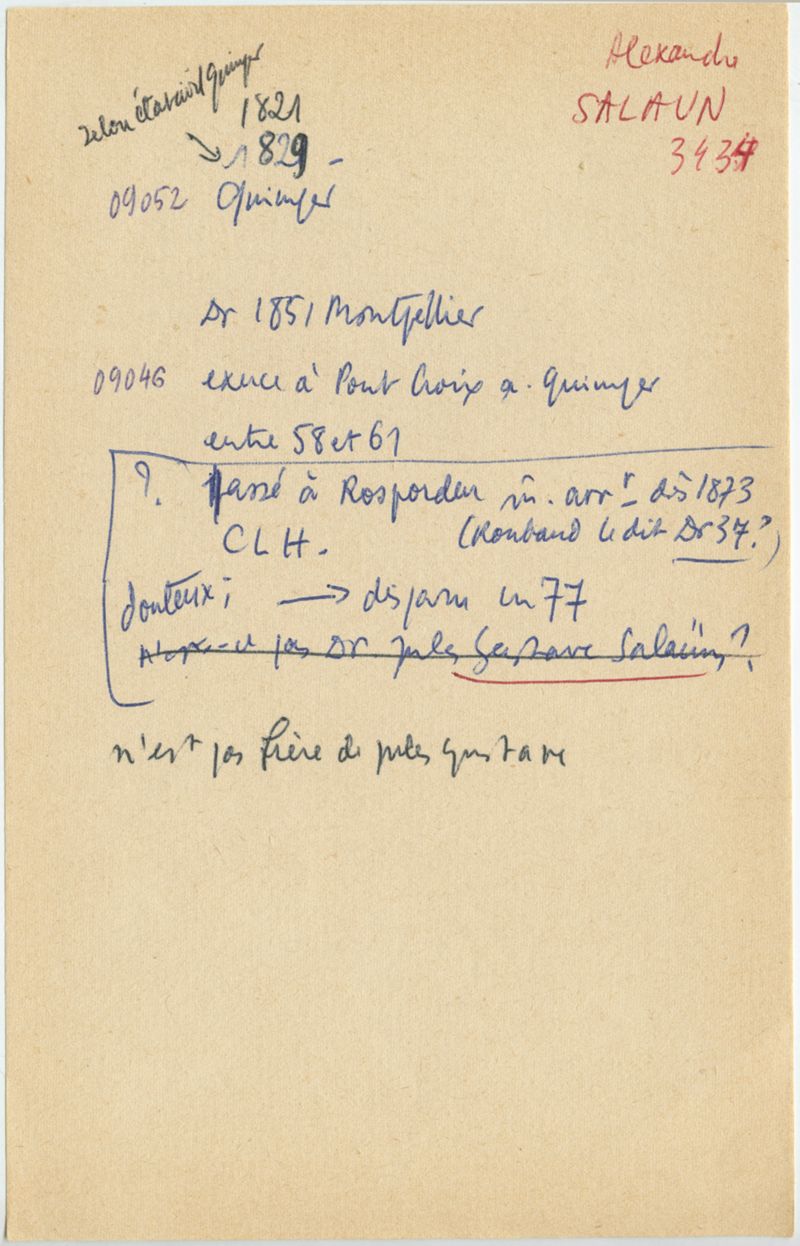 Alexandre
SALAUN
3434
selon état civil Quimper
1821
1829 -
09052 Quimper
Dr 1851 Montpellier
09046 exerce à Pont Croix a. Quimper
entre 58 et 61
?. Passé à Rosporden m. arrt dès 1873
CLH. (Roubaud le dit Dr 37?)
douteux; → disparu en 77
N'est-ce pas Dr Jules Gustave Salaün?
n'est pas frère de Jules Gustave